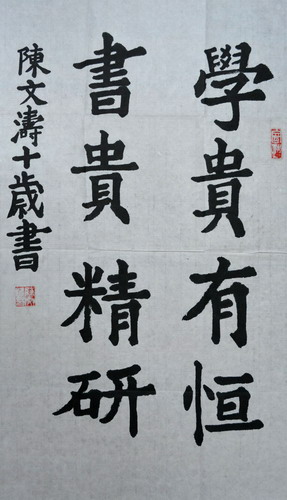 學貴有恒
書貴精研
陳文濤十歲書